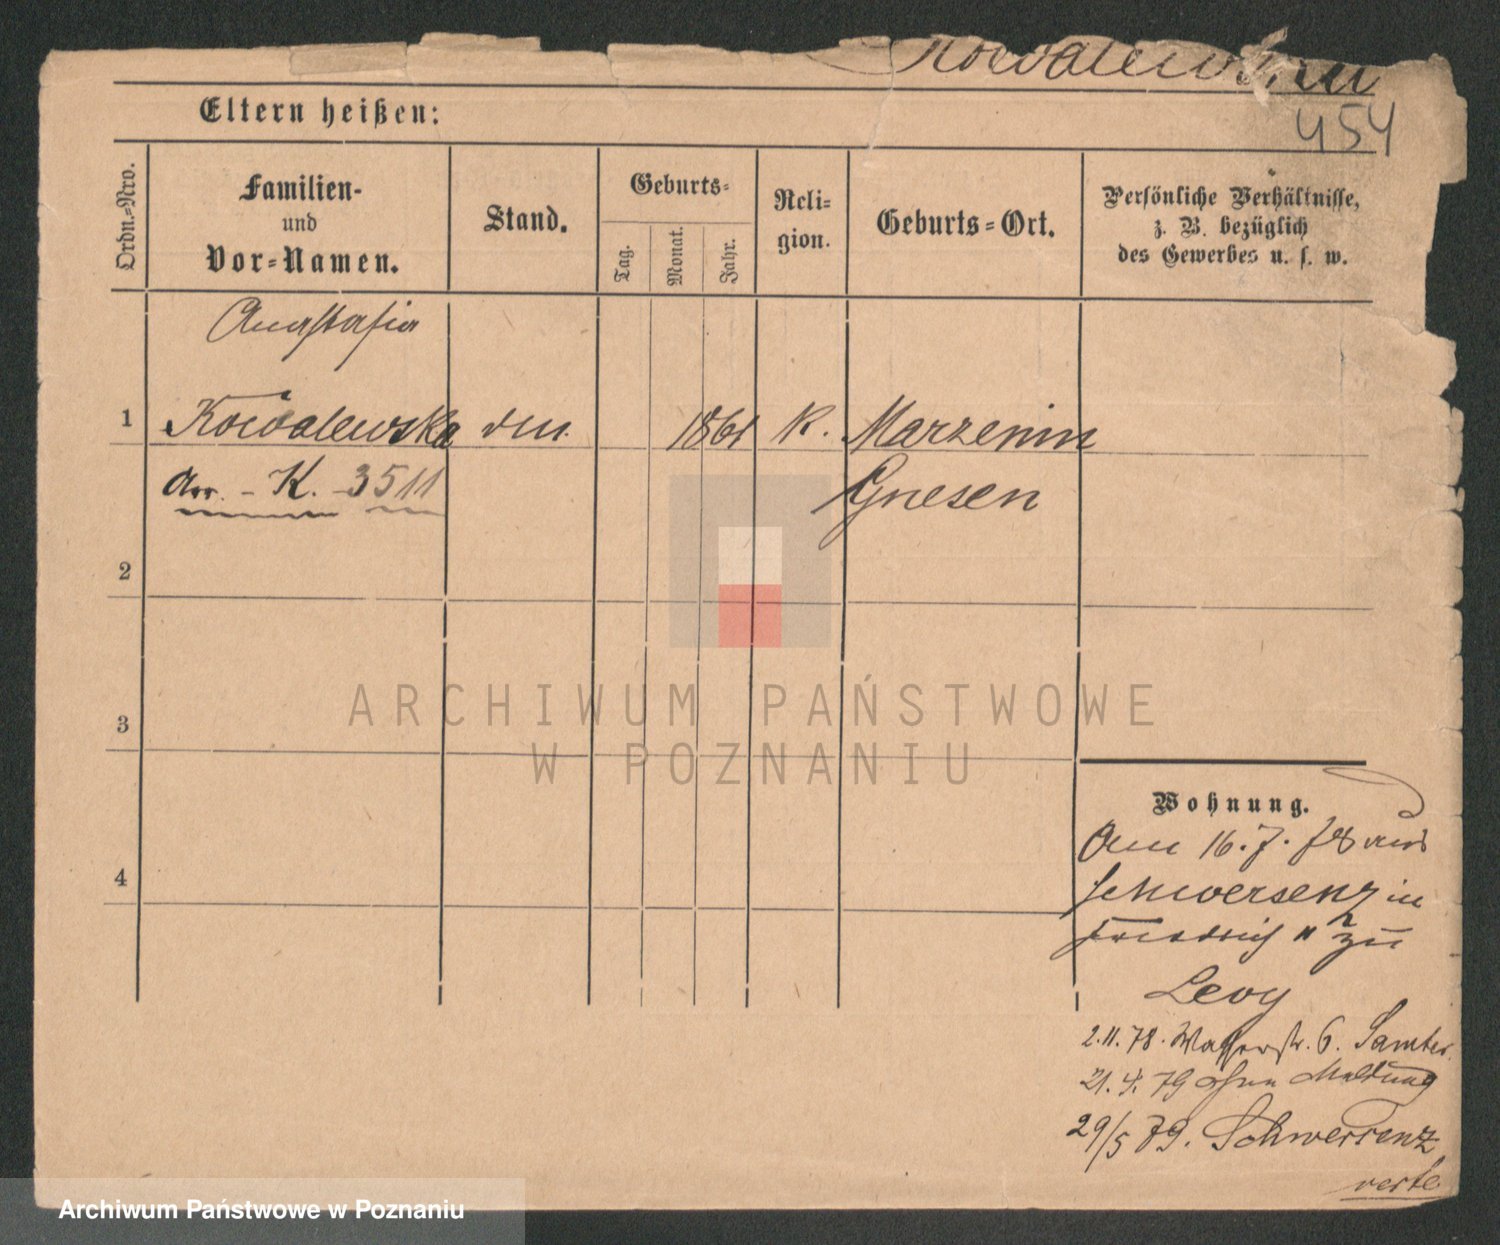 Kowalewska
454
Eltern heißen:
Ordn.-Nro.
Familien-
und
Vor-Namen.
Stand.
Geburts-
Tag.
Monat.
Jahr.
Reli-
gion.
Geburts-Ort.
Persönliche Verhältnisse,
z. B. bezüglich
des Gewerbes u. s. w.
Anastasia
1 Kowalewska 1861 K. Marzenin
K. 3511 Gnesen
2
3
4
Wohnung.
Am 16.7.78 aus
Schwersenz in
Friedrich zu
Levy
2.11.78. Wasserstr. 6. Samter
21.4.79 ohne Meldung
29/5 79. Schwersenz
verte
ARCHIWUM PAŃSTWOWE
W POZNANIU
Archiwum Państwowe w Poznaniu